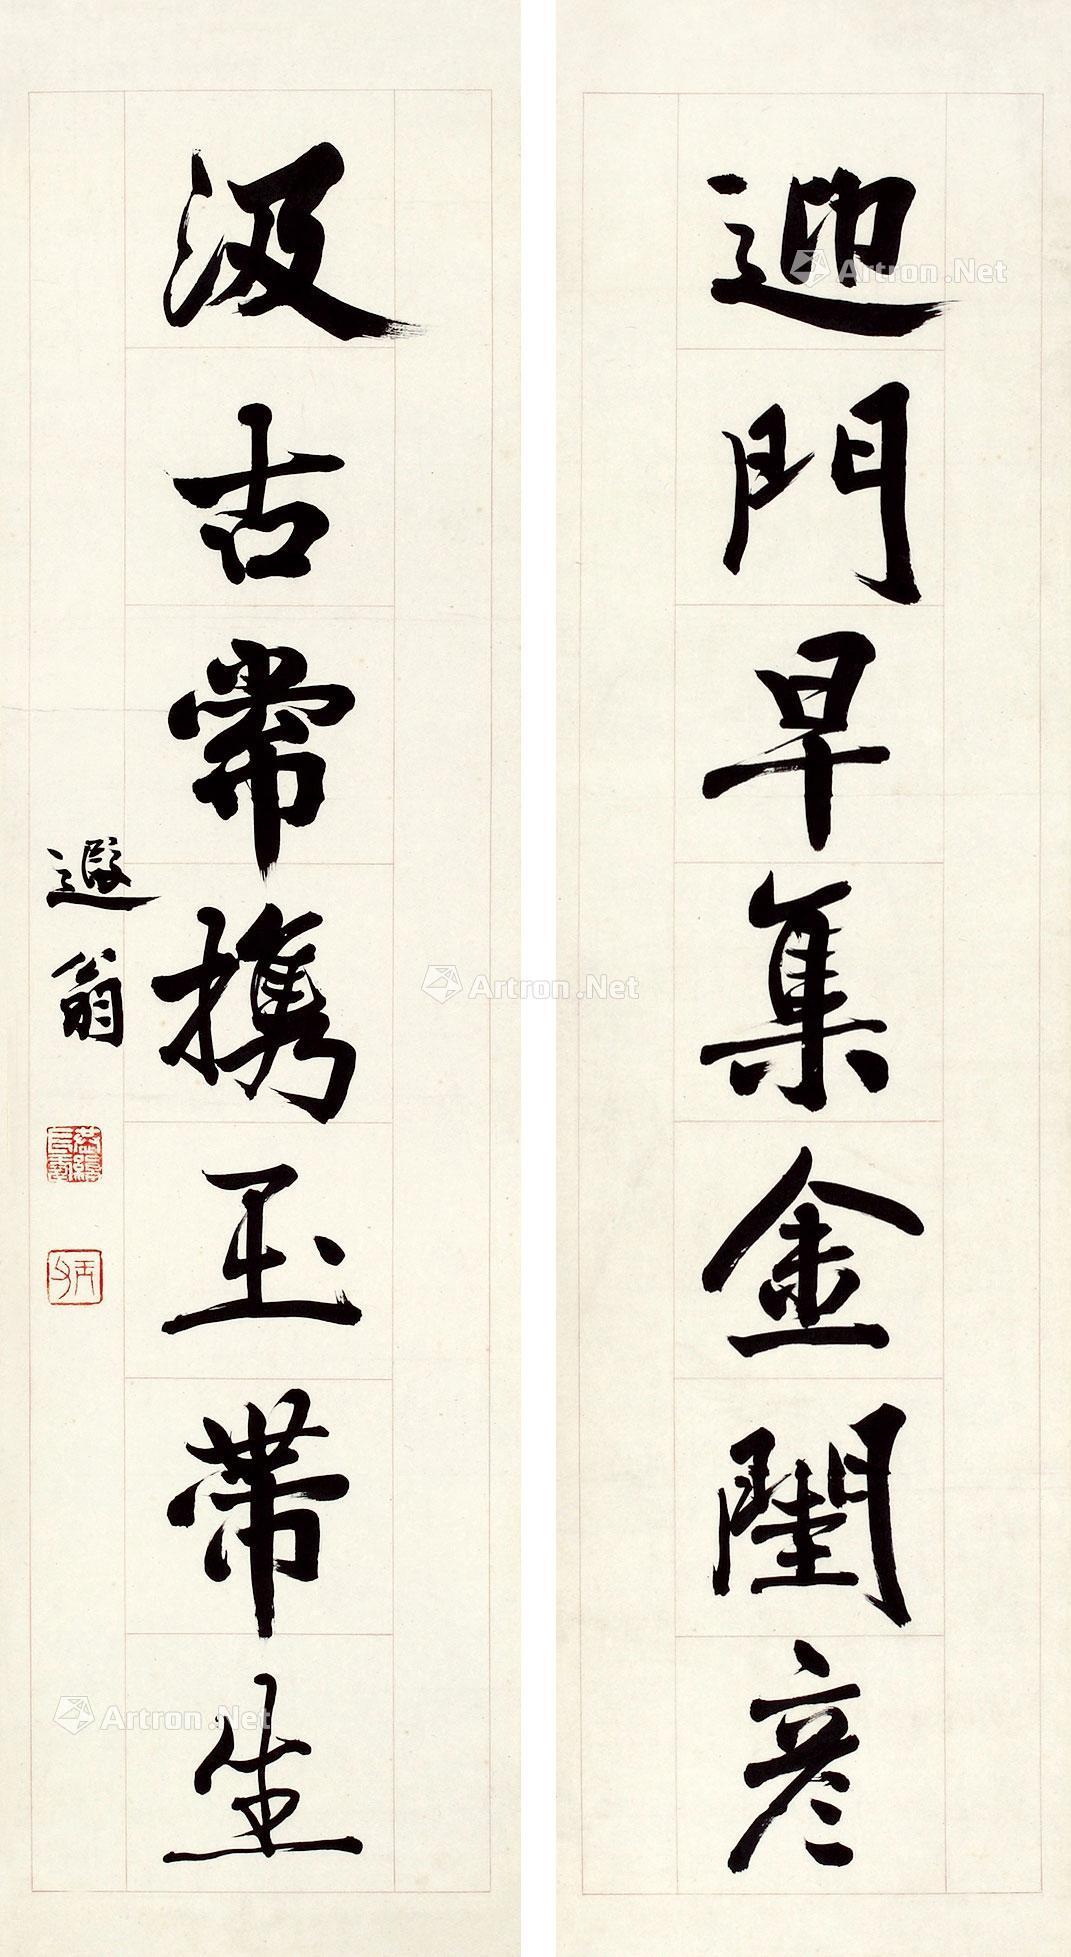 迎門早集金閨彥
汲古常攜玉帶生
遐翁
Artron.Net
Artron.Net
Artron.Net